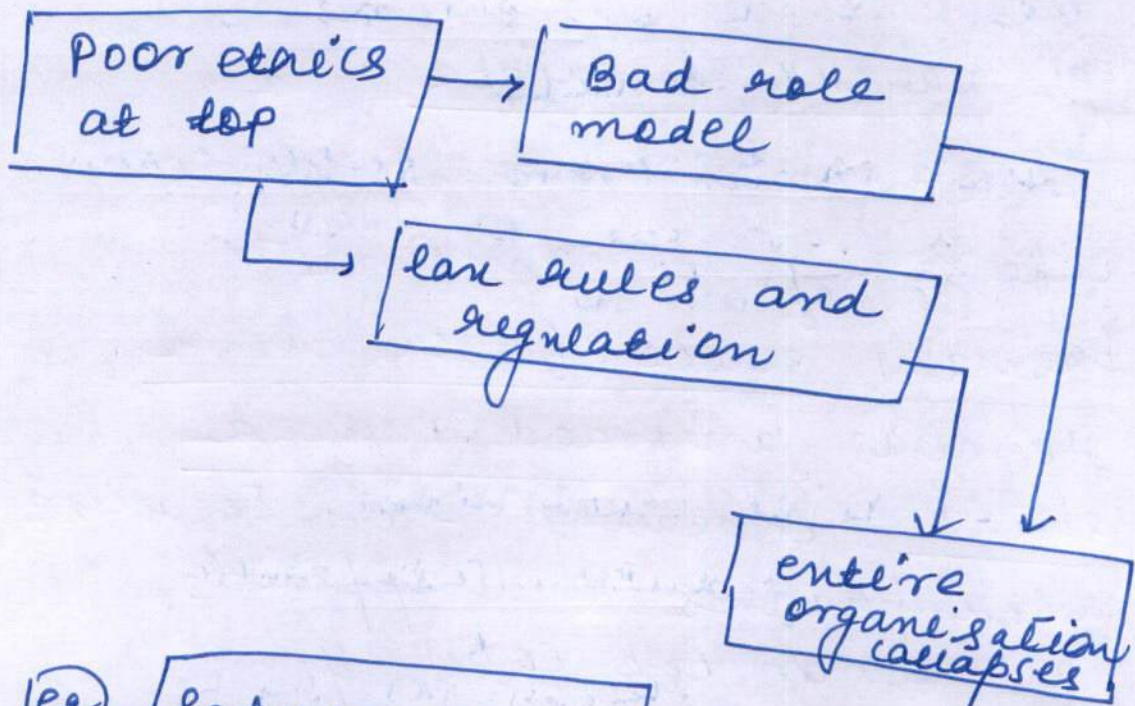 Poor ethics
at top
Bad role
model
lax rules and
regulation
entire
organisation
collapses
eg